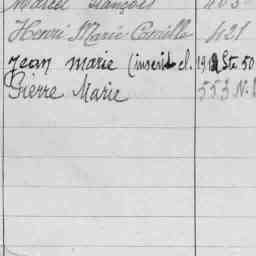 Marcel François 403
Henri Marie Camille 421
Jean Marie (inscrit cl. 19 Ste 50
Pierre Marie 553 N.